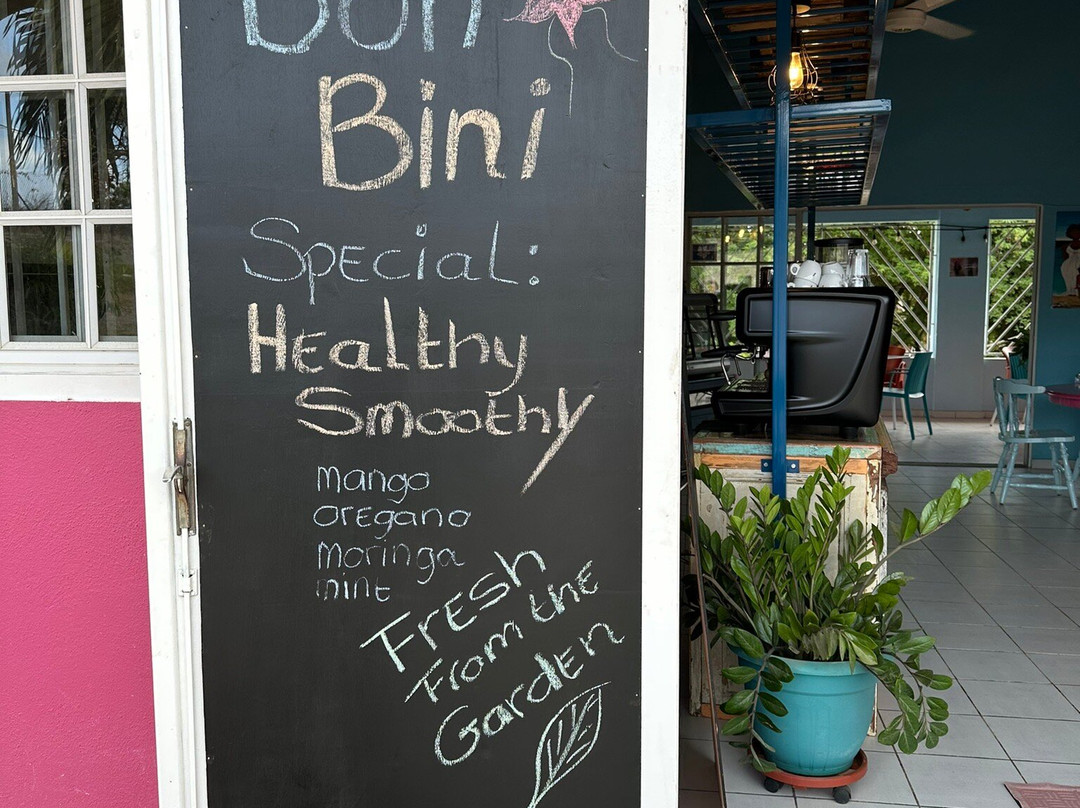 Bon
Bini
Special:
Healthy
Smoothy
mango
oregano
moringa
mint
Fresh
From the
Garden